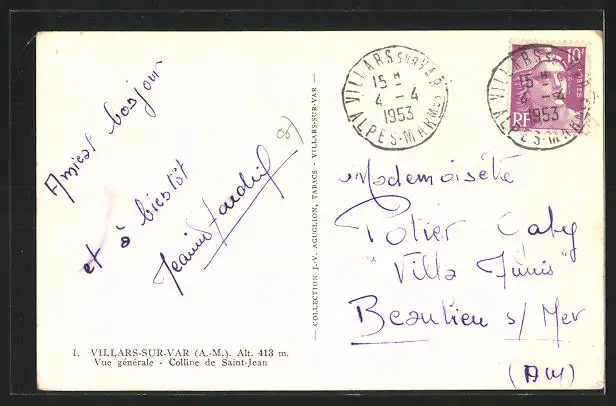 Amical bonjour
et à bientôt
I. VILLARS-SUR-VAR (A.-M.). Alt. 413 m.
Vue générale - Colline de Saint-Jean
— COLLECTION J.-V. AGUGLION, TABACS - VILLARS-SUR-VAR —
VILLARS SUR VAR
15 H
4 - 4
1953
ALPES-MARMES
10F
POSTES
RF
VILLARS S
15 H
4 - 4
1953
ALPES-MAR
Mademoiselle
Potier Caty
"Villa Junis"
Beaulieu s/ Mer
(AM)